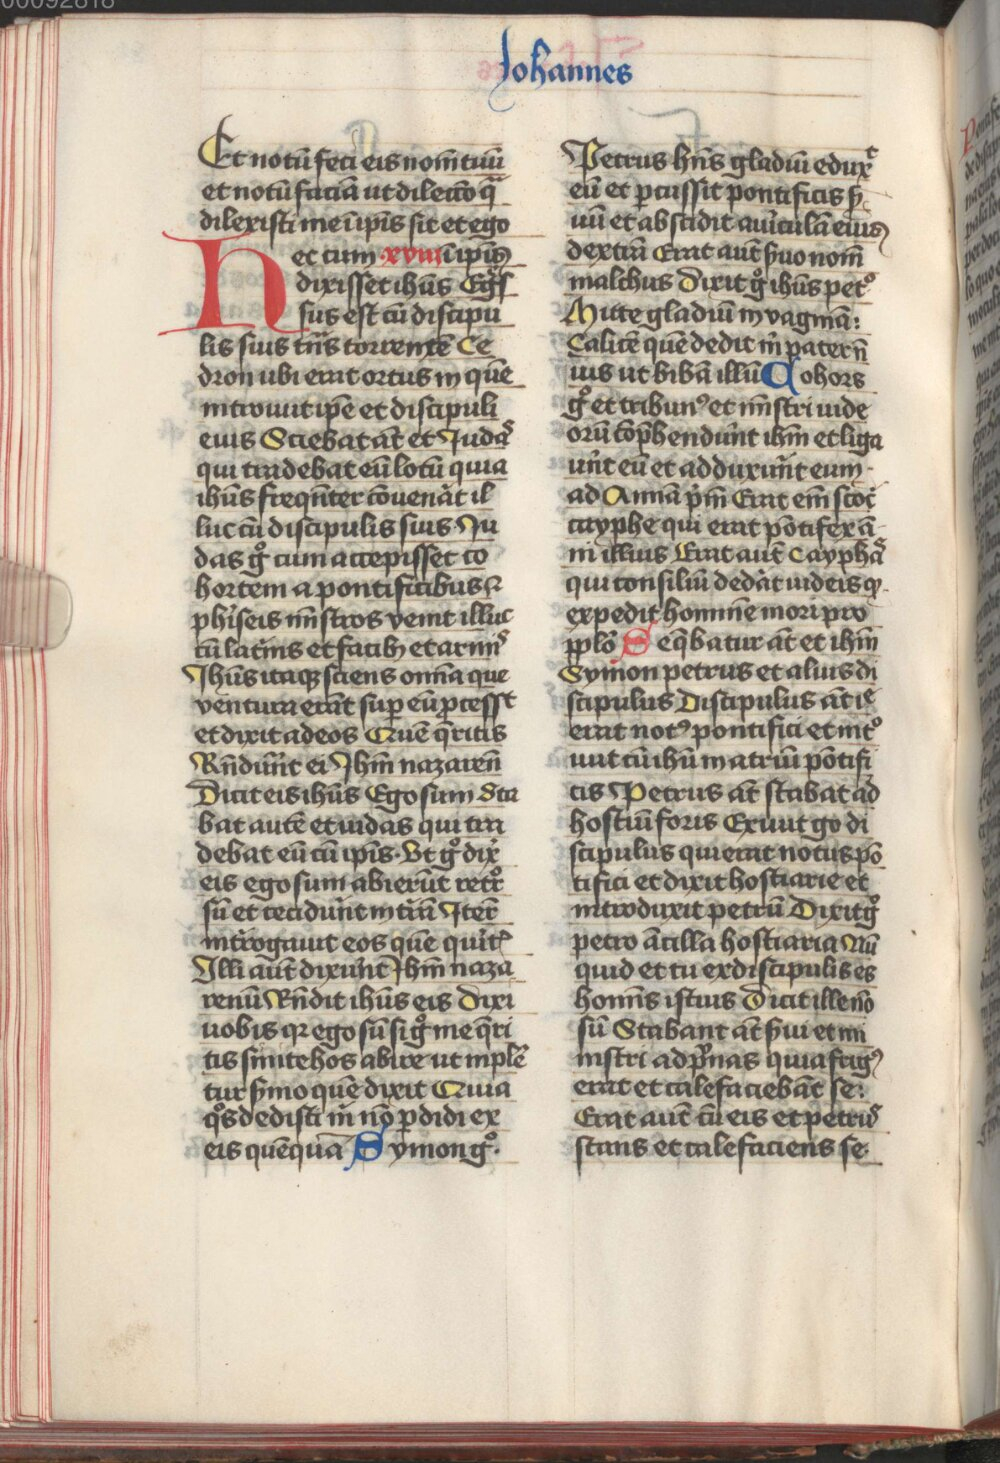 Johannes
Et notū feci eis nom̄ tuū
et notū faciā ut dilectio qͣ
dilexisti me ī ip̄is sit et ego
Hec cum xviii ī ip̄is
dixisset ih̄us Egr̄s
sus est cū discipu
lis suis trͣns torrentē Ce
dron ubi erat ortus in quē
introiuit ip̄e et discipuli
eius Sciebat āt et Judas
qui tradebat eū locū quia
ih̄us freqn̄ter cōuenāt il
luc cū discipulis suis Ju
das gͦ cum accepisset co
hortem a pontificibus ⁊
phīseis mīstros venit illuc
cū latīnis et facib₉ et armis
Jh̄us itaq₉ sciens om̄ia que
ventura erāt sup̱ eū p̱cessit
et dixit ad eos Quē q̄ritis
Rn̄dūnt ei Jh̄m nazaren̄
Dicit eis ih̄us Ego sum Sta
bat autē et iudas qui tra
debat eū cū ip̄is Ut gͦ dix̄
eis ego sum abierūt retrͦ
sū et cecidūnt in trͣā Iter̄
int̄rogauit eos quē quitꝭ
Illi aut̄ dixūnt Jh̄m naza
renū Rn̄dit ih̄us eis Dixi
uobis qꝛ ego sū si gͦ me q̄ri
tis sinite hos abire ut implē
tur s̄mo quē dixit Quia
qͦs dedisti m̄ nō p̱didi ex
eis quēquā Symon gͦ
Petrus hn̄s gladiū eduxᵗ
eū et p̱cussit pontificis s̄
uū et abscidit auriculā eius
dextrā Erat aut̄ s̄uo nom̄
malchus Dixit gͦ ih̄us petͦ
Mitte gladiū in vaginā:
Calicē quē dedit m̄ pater n̄
uis ut bibā illū Cohors
gͦ et tribun₉ et mīstri iude
orū cōp̱hendūnt ih̄m et liga
ūnt eū et adduxūnt eum
ad Annā p̄m Erat em̄ socer̄
cayphe qui erat pōtifex ā
ni illius Erat aut̄ cayphas
qui consiliū dedāt iudeis qꝛ
expedit hominē mori pro
pp̄lo Seq̄batur āt et ih̄m
Symon petrus et alius di
scipulus Discipulus āt ie
erat not₉ pontifici et intͦ
iuit cū ih̄u in atriū pōtifi
cis Petrus āt stabat ad
hostiū foris Exiuit go di
scipulus qui erat notus pō
tifici et dixit hostiarie et
introduxit petrū Dixit gͦ
petro ācilla hostiaria Nū
quid et tu ex discipulis es
homīs istius Dicit ille nō
sū Stabant āt s̄ui et mi
nistri ad pͣnas quia frig₉
erat et calefaciebāt se:
Erat aut̄ cū eis et petrus
stans et calefaciens se